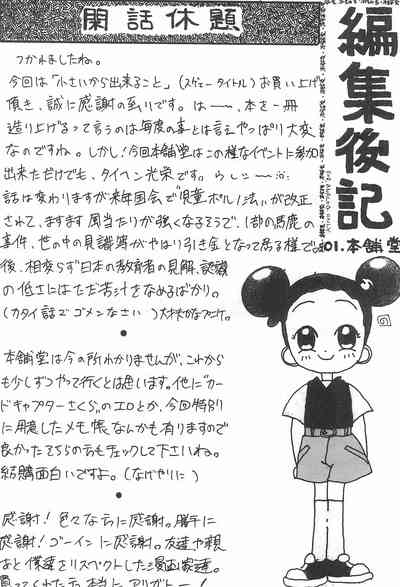 閑話休題
編集後記
01.本舗堂
つかれましたね。
今回は「小さいから出来ること」(スゲェータイトル)お買い上げ
頂き、誠に感謝の至りです。は〜〜、本を一冊
造り上げるって言うのは毎度の事とは言えやっぱり大変
なのですね。しかし!今回本舗堂はこの様なイベントに参加
出来ただけでも、タイヘン光栄です。
話は変わりますが来年国会で「児童ポルノ法」が改正
されて、ますます風当たりが強くなるそうで、1部の馬鹿の
事件、世の中の見識等がやはり引き金となって居る様で。
後、相変らず日本の教育者の見解、認識
の低さにはただ苦汁をなめるばかり。
(カタイ話でゴメンなさい)
本舗堂は今の所わかりませんが、これから
も少しずつやって行くとは思います。他に「カー
ドキャプターさくら」のエロとか、今回特別
に用意したメモ帳なんかも有りますので
良かったらそちらの方もチェックして下さいね。
結構面白いですよ。(なげやりに)
感謝!色々な方に感謝。勝手に
感謝!ゴーインに感謝。友達や親
など僕達をリスペクトした漫画家達。
買ってくれた方、本当にアリガトー!